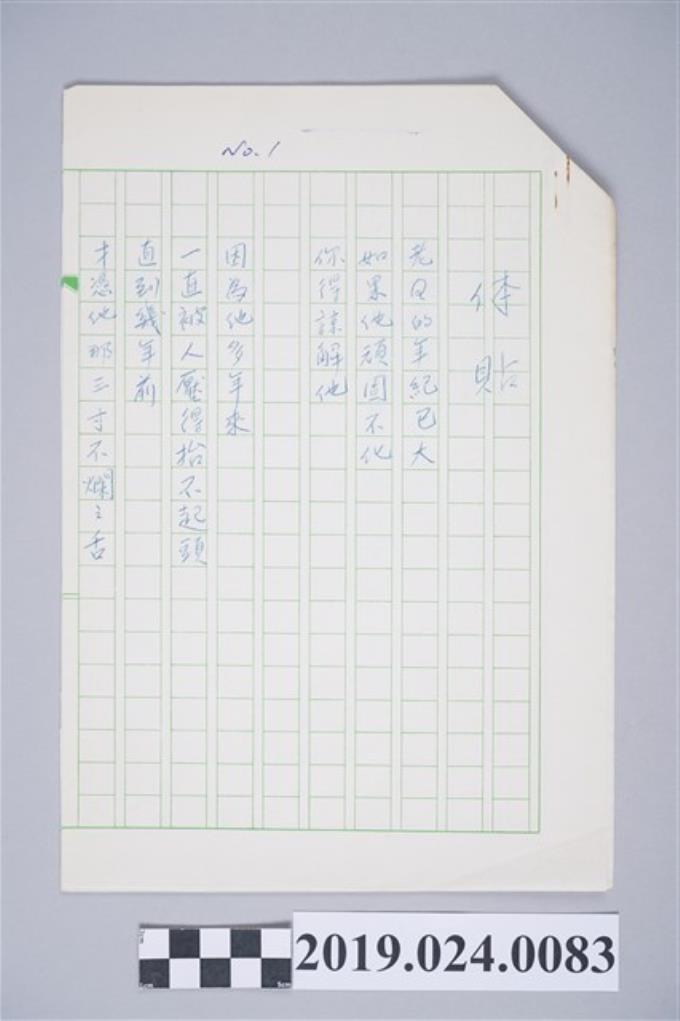 No.1
体貼
老Q的年紀已大
如果他頑固不化
你得諒解他
因為他多年來
一直被人壓得抬不起頭
直到幾年前
才憑他那三寸不爛之舌
5cm
2019.024.0083